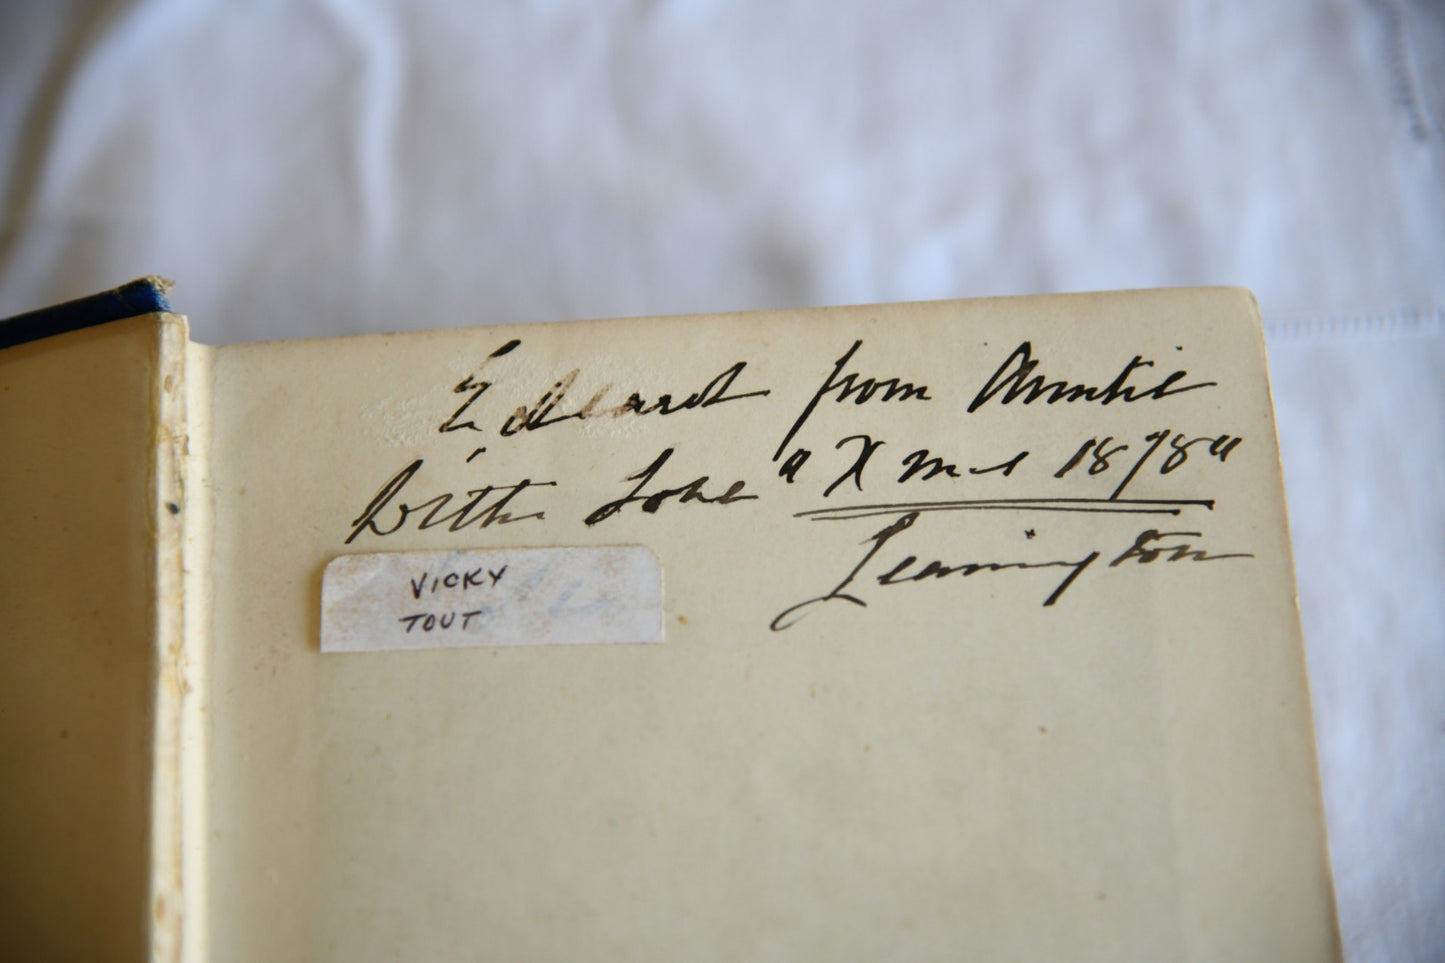 Edward from Auntie
With Love "Xmas 1898"
Leamington
VICKY
TOUT